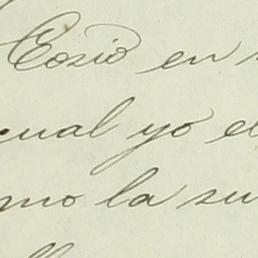 Cosió en
cual yo el
mo la su